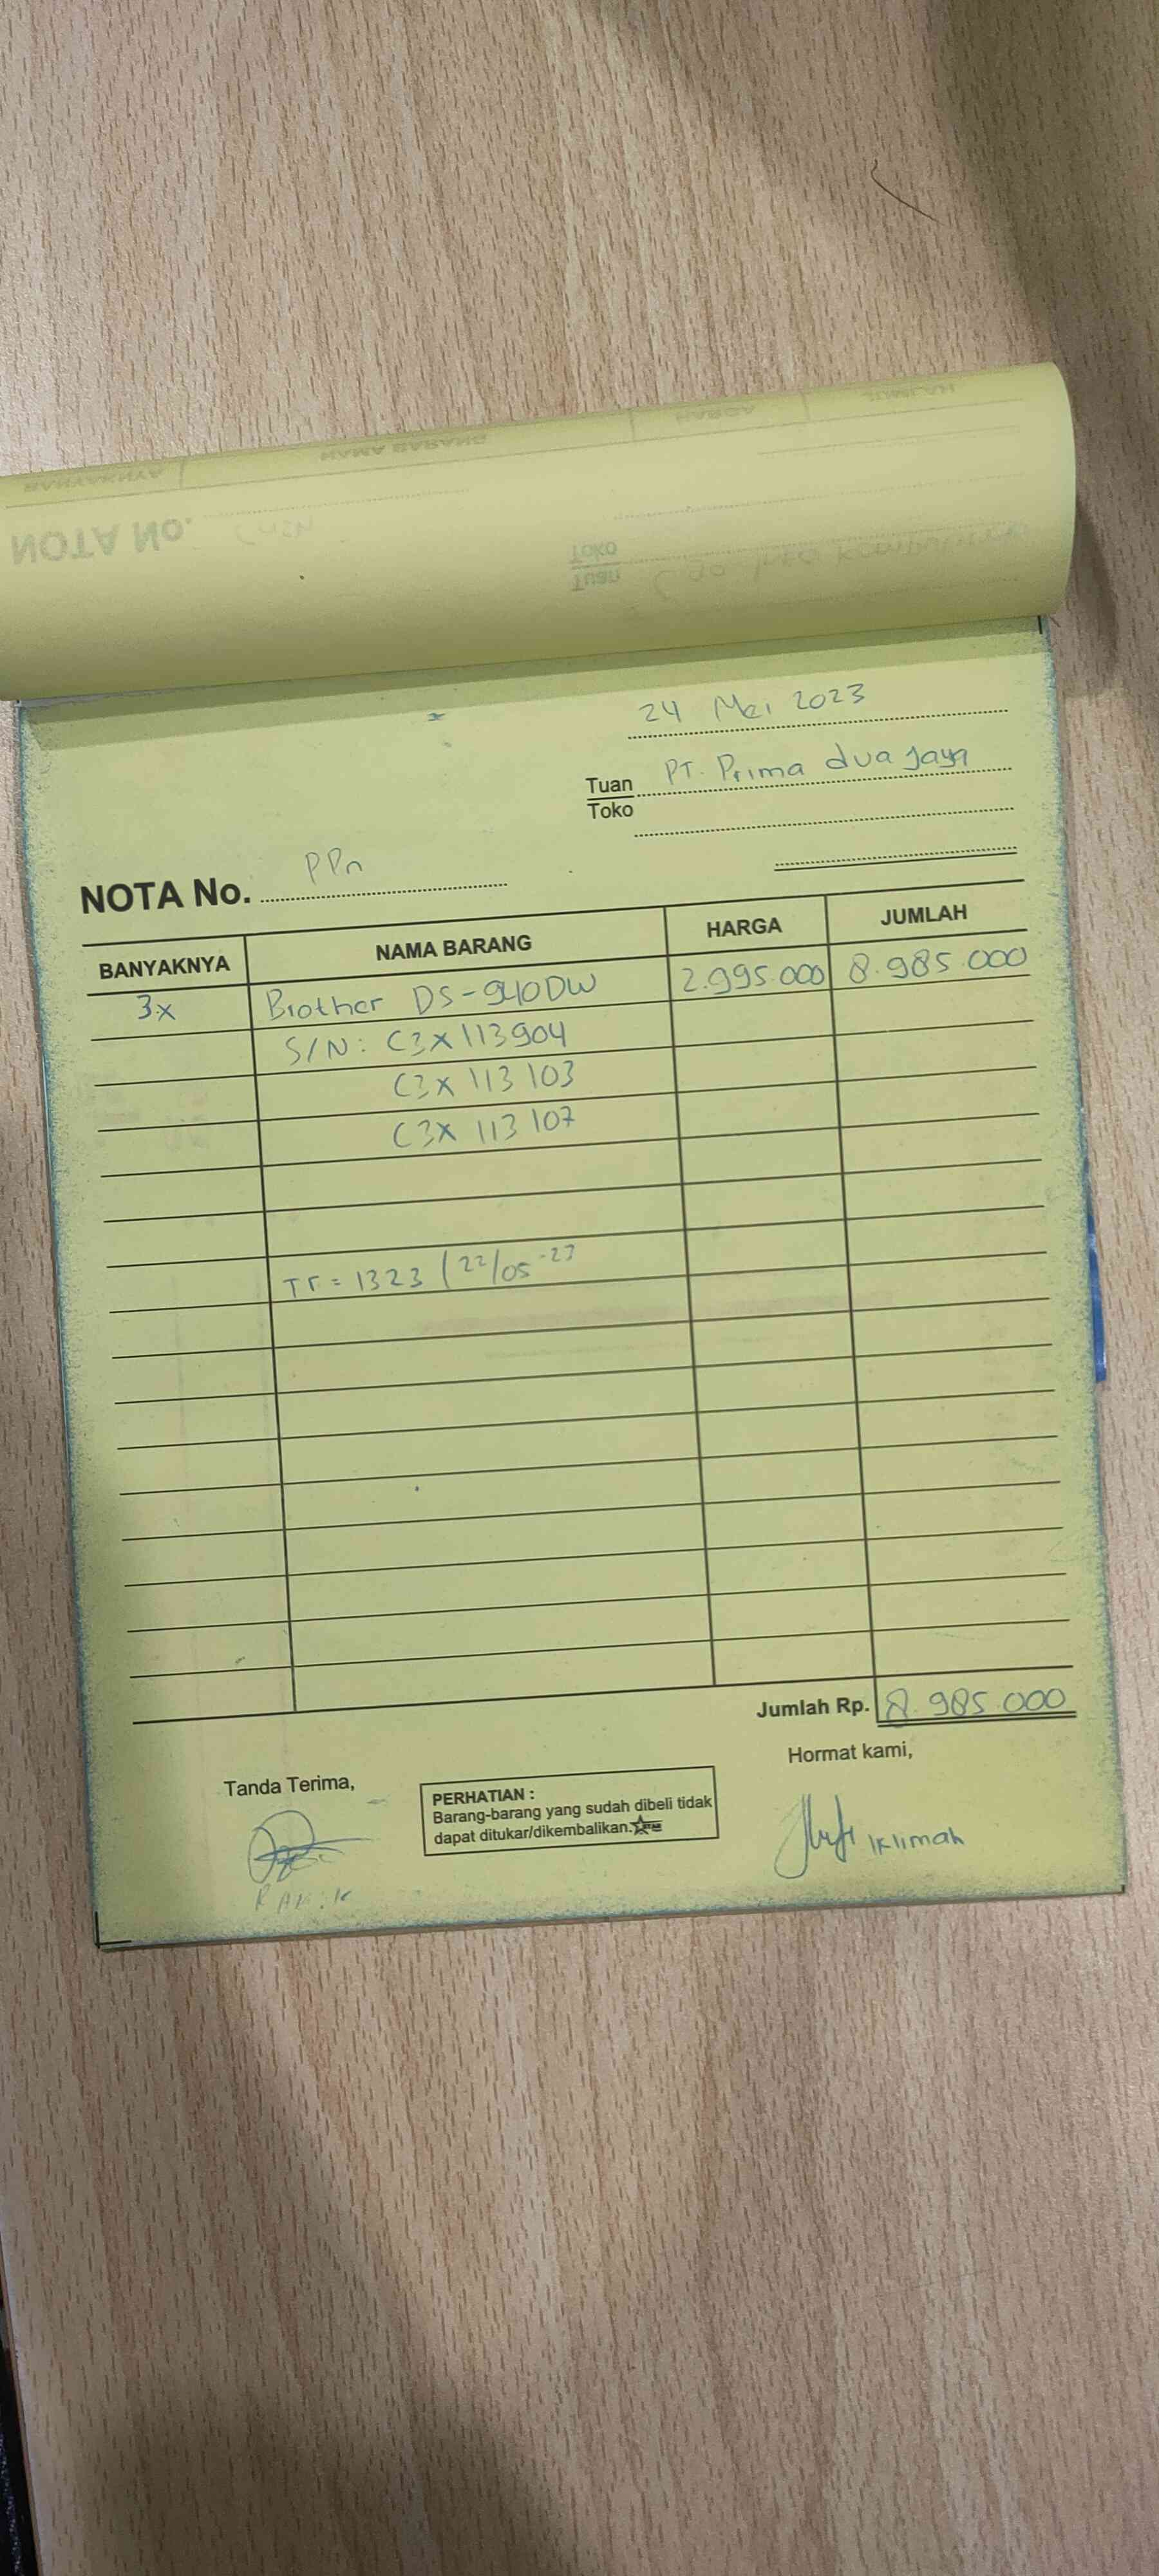 24 Mei 2023
Tuan PT. Prima dua Jaya
Toko
NOTA No. PPn
BANYAKNYA NAMA BARANG HARGA JUMLAH
3x Brother DS-940DW 2.995.000 8.985.000
S/N: C3X113904
C3X 113 103
C3X 113 107
Tr = 1323 (22/05-23
Jumlah Rp. 8.985.000
Hormat kami,
Tanda Terima,
PERHATIAN :
Barang-barang yang sudah dibeli tidak
dapat ditukar/dikembalikan.
Iklimah